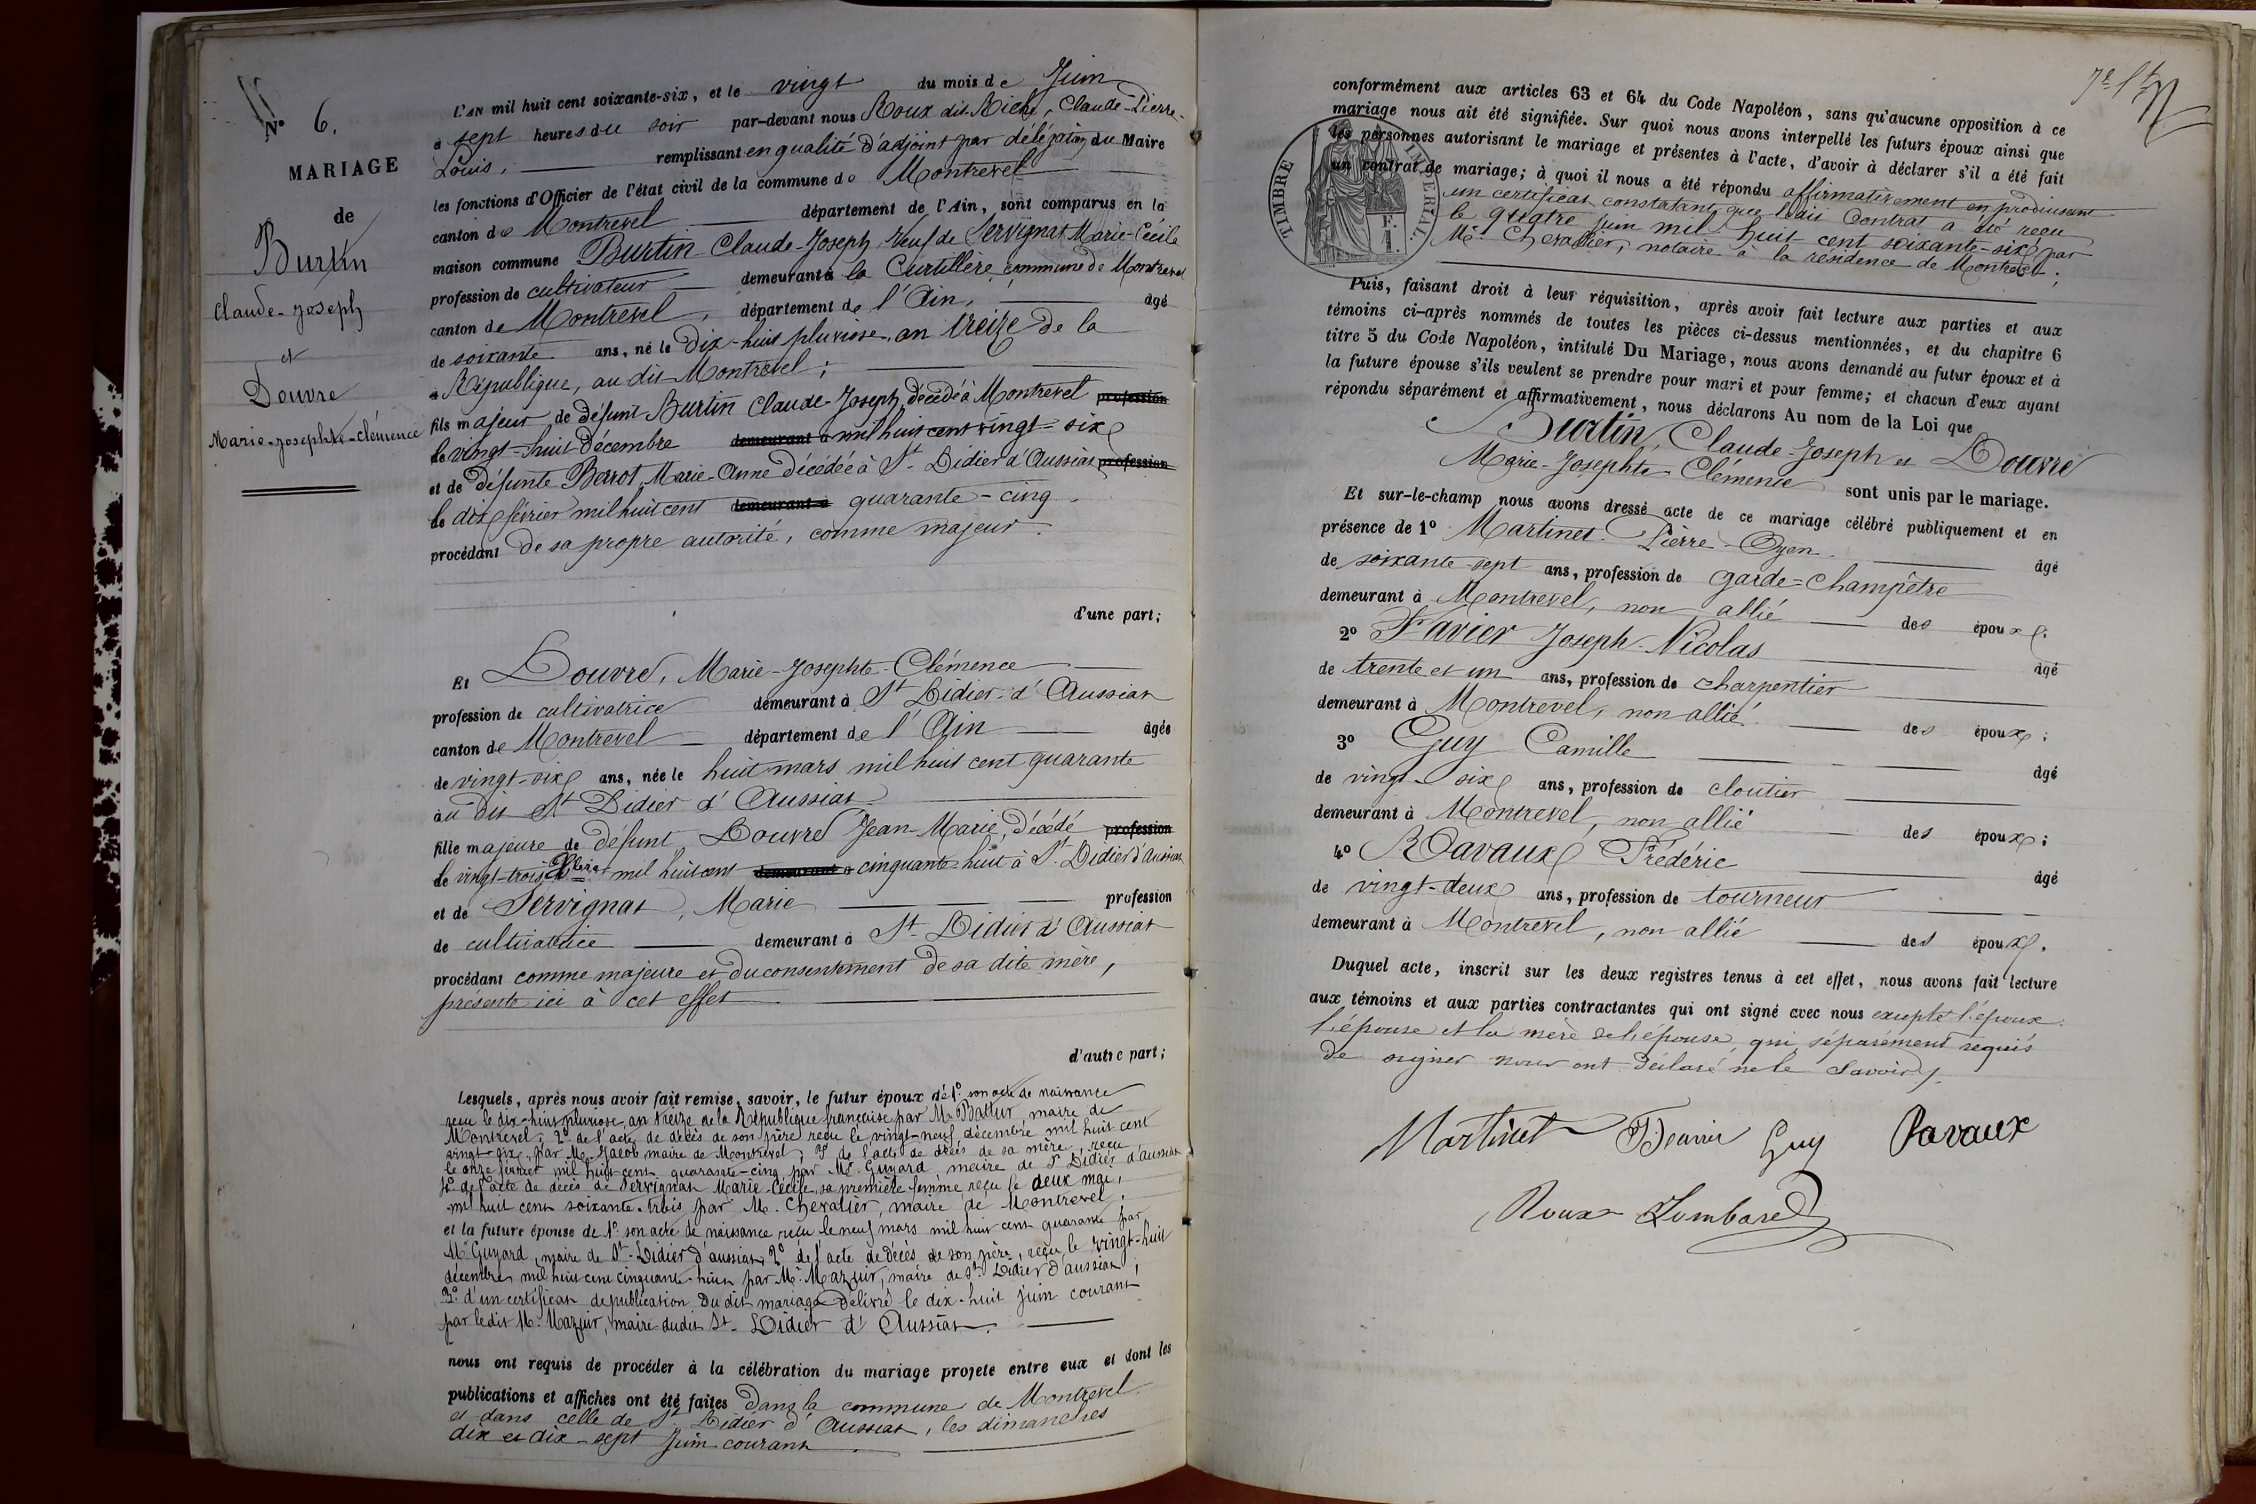 N° 6.
MARIAGE
de
Burtin
Claude-Joseph
et
Douvre
Marie-Josephte-Clémence
L'AN mil huit cent soixante-six, et le vingt du mois de Juin
à sept heures du soir par-devant nous Roux dit Riche, Claude-Pierre-
Louis, remplissant en qualité d'adjoint par délégation du Maire
les fonctions d'Officier de l'état civil de la commune de Montrevel
canton de Montrevel département de l'Ain, sont comparus en la
maison commune Burtin Claude-Joseph, veuf de Servignat Marie-Cécile
profession de cultivateur demeurant à la Curtillère, commune de Montrevel
canton de Montrevel, département de l'Ain, âgé
de soixante ans, né le dix-huit pluviose, an treize de la
à République, au dit Montrevel;
fils majeur de défunt Burtin Claude-Joseph, décédé à Montrevel profession
le vingt-huit décembre demeurant à mil huit cent vingt-six
et de défunte Berrot, Marie-Anne décédée à St Didier d'Aussiat profession
le dix février mil huit cent demeurant à quarante-cinq.
procédant de sa propre autorité, comme majeur.
d'une part;
Et Douvre, Marie-Josephte-Clémence
profession de cultivatrice demeurant à St Didier-d'Aussiat
canton de Montrevel département de l'Ain âgée
de vingt-six ans, née le huit mars mil huit cent quarante
à u dit St Didier d'Aussiat
fille majeure de défunt Douvre Jean-Marie, décédé profession
le vingt-trois Xbre mil huit cent demeurant à cinquante-huit à St Didier d'Aussiat
et de Servignat, Marie profession
de cultivatrice demeurant à St-Didier d'Aussiat
procédant comme majeure et du consentement de sa dite mère,
présente ici à cet effet
d'autre part;
Lesquels, après nous avoir fait remise, savoir, le futur époux de 1° son acte de naissance
reçu le dix-huit pluviose, an treize de la République française par Mr Battur, maire de
Montrevel; 2° de l'acte de décès de son père reçu le vingt-neuf décembre mil huit cent
vingt-six, par Mr Jacob maire de Montrevel; 3° de l'acte de décès de sa mère, reçu
le onze février mil huit cent quarante-cinq par Mr Guyard, maire de St Didier d'Aussiat
4° de l'acte de décès de Servignat Marie-Cécile, sa première femme reçu le deux mai,
mil huit cent soixante-trois par Mr. Chevalier, maire de Montrevel.
et la future épouse de 1° son acte de naissance reçu le neuf mars mil huit cent quarante par
Mr Guyard, maire de St-Didier d'aussiat, 2° de l'acte de décès de son père, reçu le vingt-huit
décembre mil huit cent cinquante-huit par Mr Mazuir, maire de St Didier d'aussiat,
3° d'un certificat de publication du dit mariage délivré le dix-huit juin courant
par le dit Mr. Mazuir, maire dudit St-Didier d'Aussiat.
nous ont requis de procéder à la célébration du mariage projeté entre eux et dont les
publications et affiches ont été faites dans la commune de Montrevel
et dans celle de St Didier d'Aussiat, les dimanches
dix et dix-sept juin courant.
conformément aux articles 63 et 64 du Code Napoléon, sans qu'aucune opposition à ce
mariage nous ait été signifiée. Sur quoi nous avons interpellé les futurs époux ainsi que
les personnes autorisant le mariage et présentes à l'acte, d'avoir à déclarer s'il a été fait
un contrat de mariage; à quoi il nous a été répondu affirmativement en produisant
un certificat constatant que ledit Contrat a été reçu
le quatre juin mil huit cent soixante-six, par
Mr. Chevalier, notaire à la résidence de Montrevel;
TIMBRE IMPERIAL
F.
1.
Puis, faisant droit à leur réquisition, après avoir fait lecture aux parties et aux
témoins ci-après nommés de toutes les pièces ci-dessus mentionnées, et du chapitre 6
titre 5 du Code Napoléon, intitulé Du Mariage, nous avons demandé au futur époux et à
la future épouse s'ils veulent se prendre pour mari et pour femme; et chacun d'eux ayant
répondu séparément et affirmativement, nous déclarons Au nom de la Loi que
Burtin, Claude-Joseph et Douvre
Marie-Josephte-Clémence sont unis par le mariage.
Et sur-le-champ nous avons dressé acte de ce mariage célébré publiquement et en
présence de 1° Martinet Pierre-Oyen âgé
de soixante-sept ans, profession de garde-champêtre
demeurant à Montrevel, non allié des époux.
2° Favier Joseph-Nicolas âgé
de trente et un ans, profession de charpentier
demeurant à Montrevel, non allié des époux;
3° Guy Camille âgé
de vingt-six ans, profession de cloutier
demeurant à Montrevel, non allié des époux;
4° Ravaux Frédéric âgé
de vingt-deux ans, profession de tourneur
demeurant à Montrevel, non allié des époux.
Duquel acte, inscrit sur les deux registres tenus à cet effet, nous avons fait lecture
aux témoins et aux parties contractantes qui ont signé avec nous excepté l'époux
l'épouse et la mère de l'épouse, qui, séparément requis
de signer nous ont déclaré ne le savoir.
Martinet Guy Ravaux
Roux Lombard